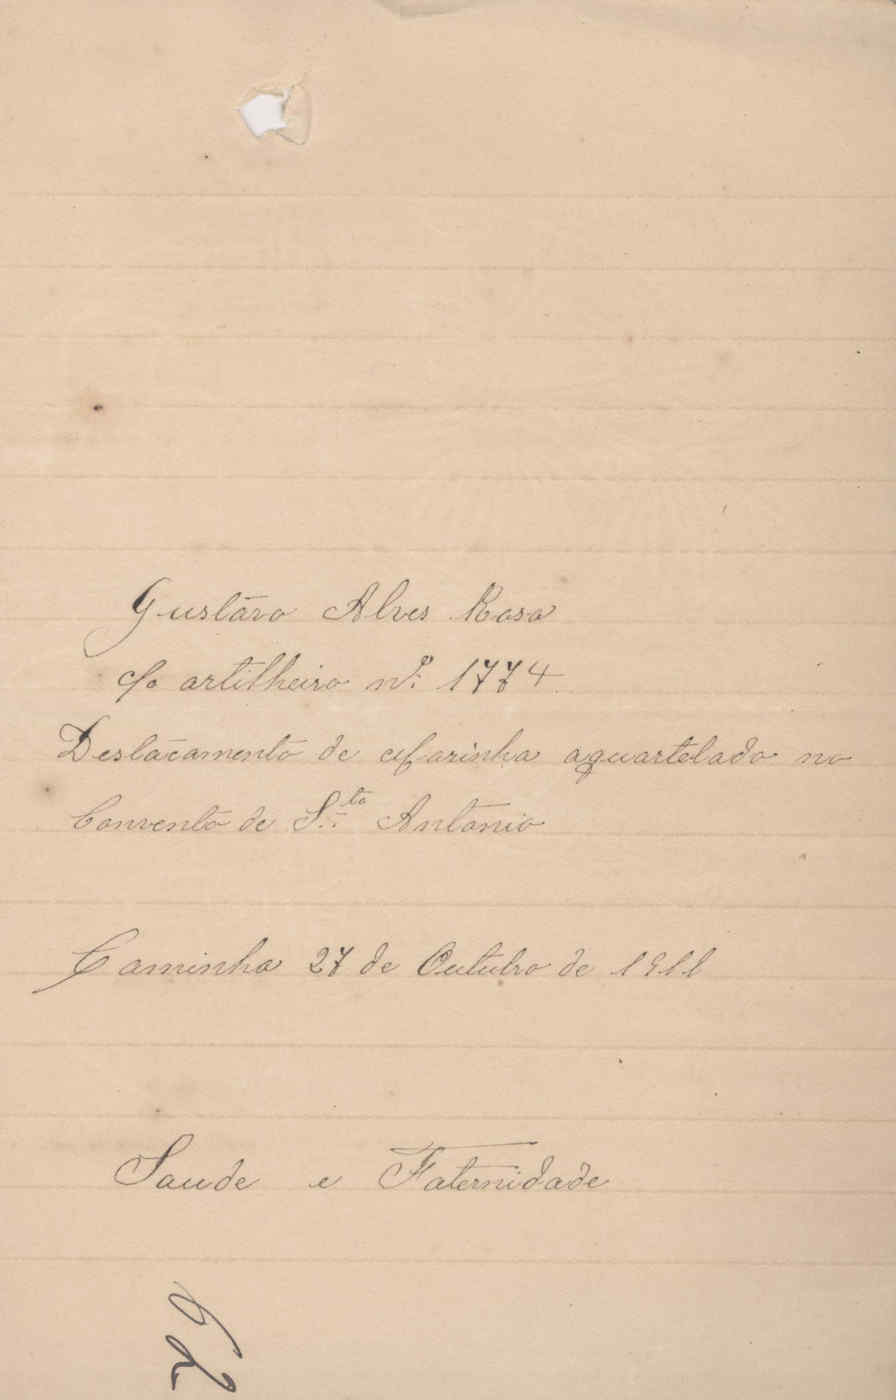 Gustavo Alves Rosa
1º artilheiro nº 1774
Destacamento de Marinha aquartelado no
Convento de Sto Antonio
Caminha 27 de Outubro de 1911
Saude e Faternidade
62